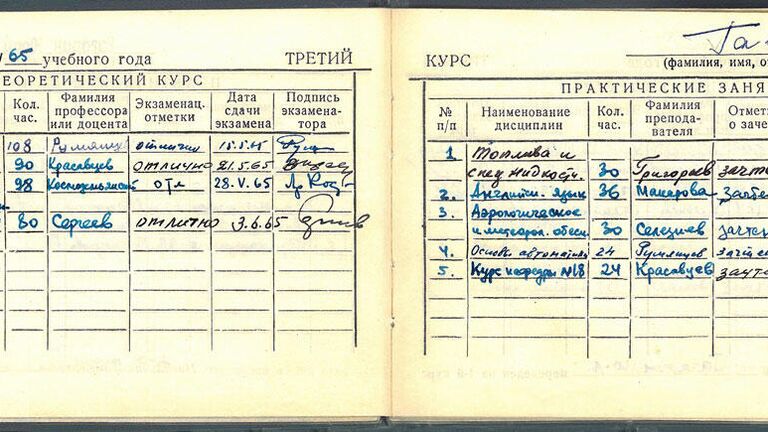 65 учебного года ТРЕТИЙ
ЕОРЕТИЧЕСКИЙ КУРС
Кол. час. Фамилия профессора или доцента Экзаменац. отметки Дата сдачи экзамена Подпись экзаменатора
108 Румянцев отлично
90 Красавцев отлично 21.5.65
98 отл 28.V.65
80 Сергеев отлично 3.6.65
КУРС
(фамилия, имя, от
ПРАКТИЧЕСКИЕ ЗАНЯ
№ п/п Наименование дисциплин Кол. час. Фамилия преподавателя Отмет о заче
1 Топлива и
спец жидкости. 30 Григорьев зачте
2. Английск. язык 36 Макарова зачте
3. Аэрологическое
и метеорол. обесп. 30 Селезнев зачтен
4. Основы автоматики 24 Румянцев зачтен
5. Курс кафедры №18 24 Красавцев зачте